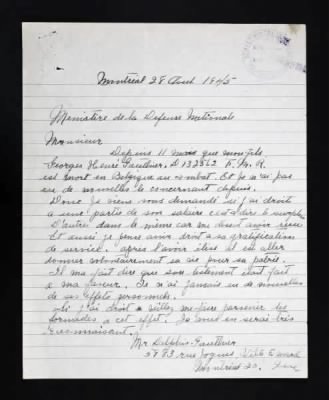 Montréal 28 Aout 1945
Ministère de la Défense Nationale
Monsieur
Depuis 11 mois que mon fils
Georges Henri Gauthier. D 132862 F. M. R.
est mort en Belgique au combat. Et je n'ai pas
eu de nouvelles le concernant depuis.
Donc je viens vous demandé si j'ai droit
a une partie de son salaire c'est a dire le surplus
D'autre dans le même car me disent avoir réçu
Et aussi je pense avoir droit a sa gratification
de service. après l'avoir élevé il est aller
donner volontairement sa vie pour sa patrie.
Il ma fait dire que son testament était fait
a ma faveur. Je n'ai jamais eu de nouvelles
de ses effets personnels.
si j'ai droit a veillez me faire parvenir les
formules a cet effet. Je vous en serai très
reconnaissant.
Mr Delphis Gauthier
2783 rue Joques Ville Emard
Montréal 20.